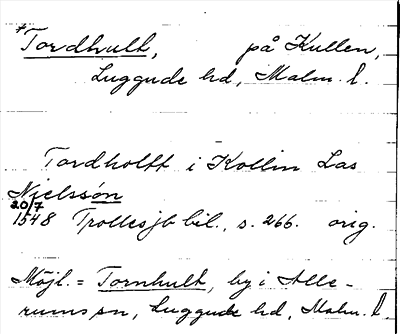 *Tordhult, på Kullen,
Luggude hd, Malm. l.
Tordholtt i Kollin Las
Nielssøn
20/7
1548 Trollesjb bil., s. 266. orig.
Möjl. = Tornhult, by i Alle-
rums sn, Luggude hd, Malm. l.